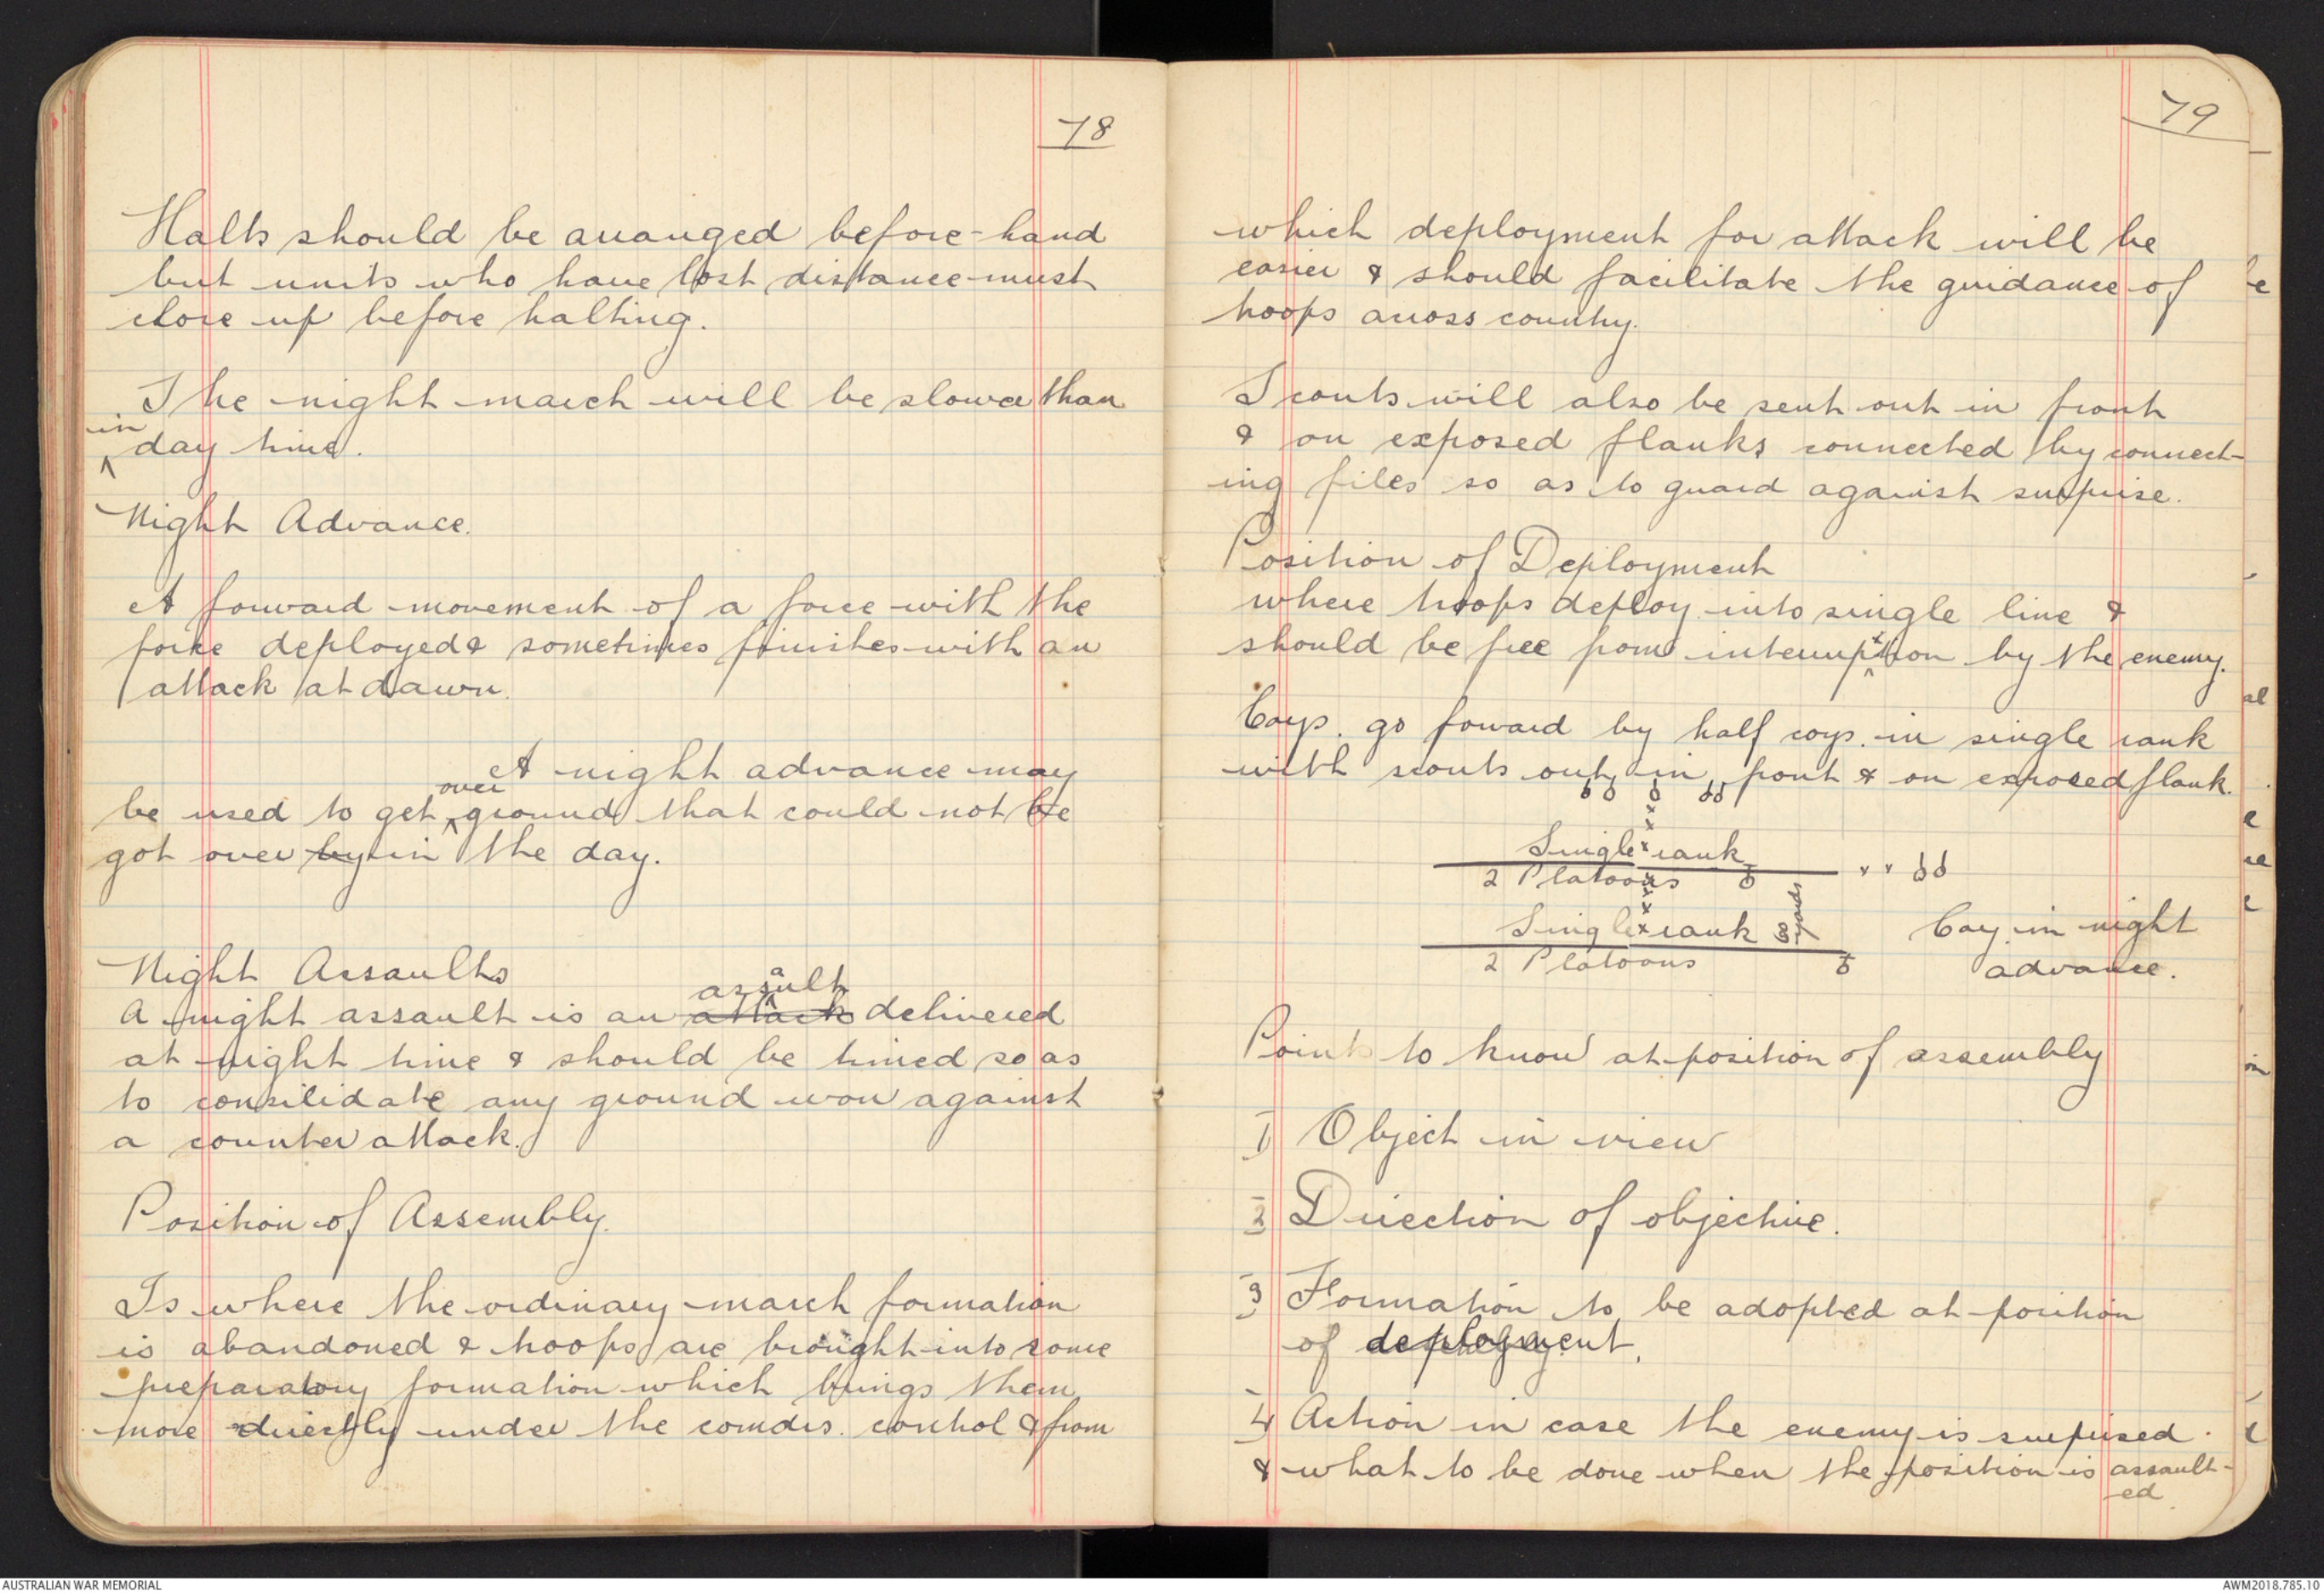 78
Halts should be arranged before-hand
but units who have lost distance must
close up before halting.
The night march will be slower than
in
day time.
Night Advance.
A forward movement of a force with the
force deployed & sometimes finishes with an
attack at dawn.
A night advance may
over
be used to get ground that could not be
got over by in the day.
Night Assaults
assault
A night assault is an attack delivered
at night time & should be timed so as
to consilidate any ground won against
a counter attack.
Position of Assembly.
Is where the ordinary march formation
is abandoned & troops are brought into some
preparatory formation which brings them
more directly under the comdrs. control & from
79
which deployment for attack will be
easier & should facilitate the guidance of
troops across country.
Scouts will also be sent out in front
& on exposed flanks connected by connect-
ing files so as to guard against surprise.
Position of Deployment
where troops deploy into single line &
should be free from interruption by the enemy.
Coys. go foward by half coys. in single rank
with scouts out in front & on exposed flank.
Single rank
2 Platoons
Single rank
yards
2 Platoons
Coy. in night
advance.
Points to know at position of assembly
1 Object in view
2 Direction of objective.
3 Formation to be adopted at position
of deployment.
4 Action in case the enemy is surprised.
& what to be done when the position is assault-
ed.
AUSTRALIAN WAR MEMORIAL
AWM2018.785.10